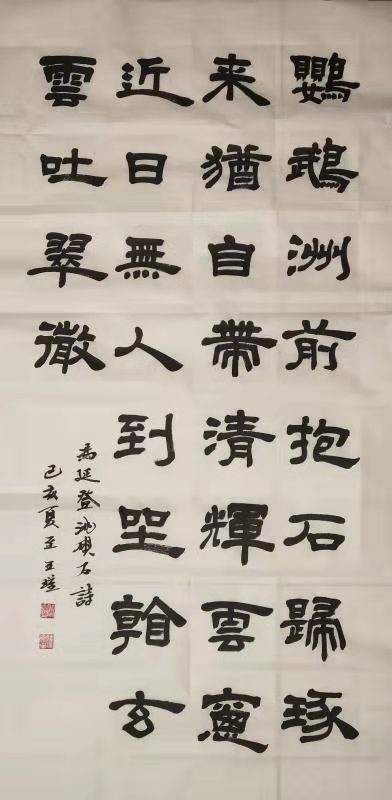 鸚鵡洲前抱石歸琢
来猶自帶清輝雲窗
近日無人到坐看玄
雲吐翠微
馮延登洮硯石詩
己亥夏至王